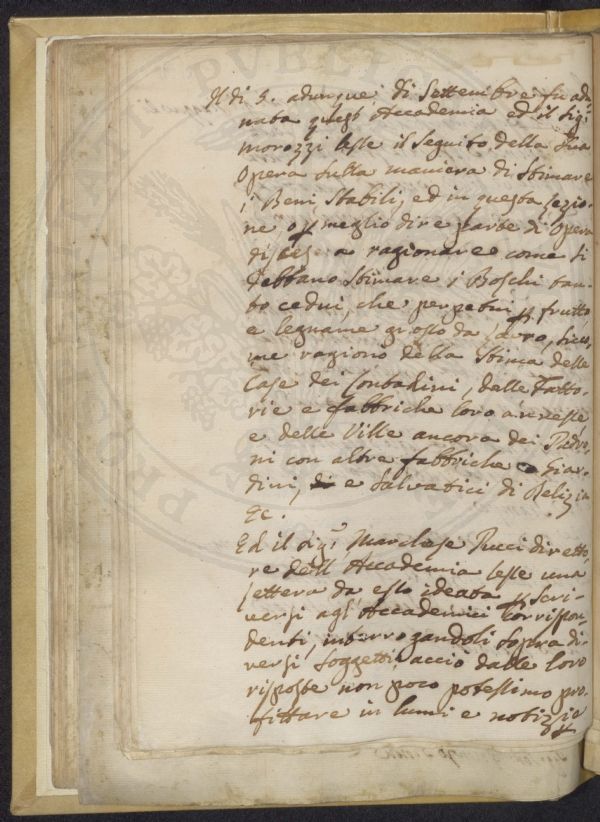 Il dì 5. adunque di Settembre fu adu-
nata quest' Accademia ed il Sig.r
Morozzi lesse il seguito della sua
Opera sulla maniera di stimare
i Beni Stabili, ed in questa lezio-
ne o p meglio dire parte di Opera
discese a ragionare come si
debbano stimare i Boschi tan-
to cedui, che perpetui p frutto
e legname grosso da lavoro, sicco-
me ragionò della stima delle
Case dei Contadini, delle Fatto-
rie e fabbriche loro annesse
e delle Ville ancora dei Padro-
ni con altre fabbriche e Giar-
dini, e Salvatici di Delizia
&c.
Ed il Sig.r Marchese Pucci diretto-
re dell' Accademia lesse una
lettera da esso ideata p scri-
versi agl' Accademici Corrispon-
denti, interrogandoli sopra di-
versi soggetti, acciò dalle loro
risposte non poco potessimo pro-
fittare in lumi e notizie